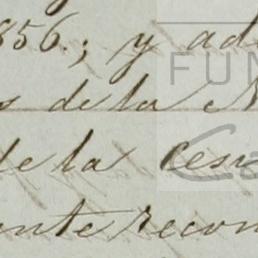 1856.; y ad
s de la N
de la cesi
ante recon
FUN
Ca